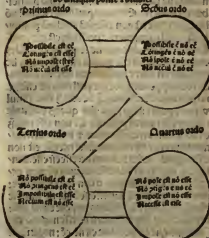 Primus ordo
Scdus ordo
Possibile est eē
Cōtingēs est esse
Nō impossi est eē
Nō necciū est esse
Possibile ē nō eē
Cōtingēs ē nō eē
Nō ipole ē nō eē
Nō neccū ē nō eē
Tertius ordo
Quartus ordo
Nō possibile est eē
Nō ptigens est eē
Impossibile est esse
Necium est nō esse
Nō pole est nō esse
Nō ptiges ē nō esse
Impole est nō esse
Necesse est esse